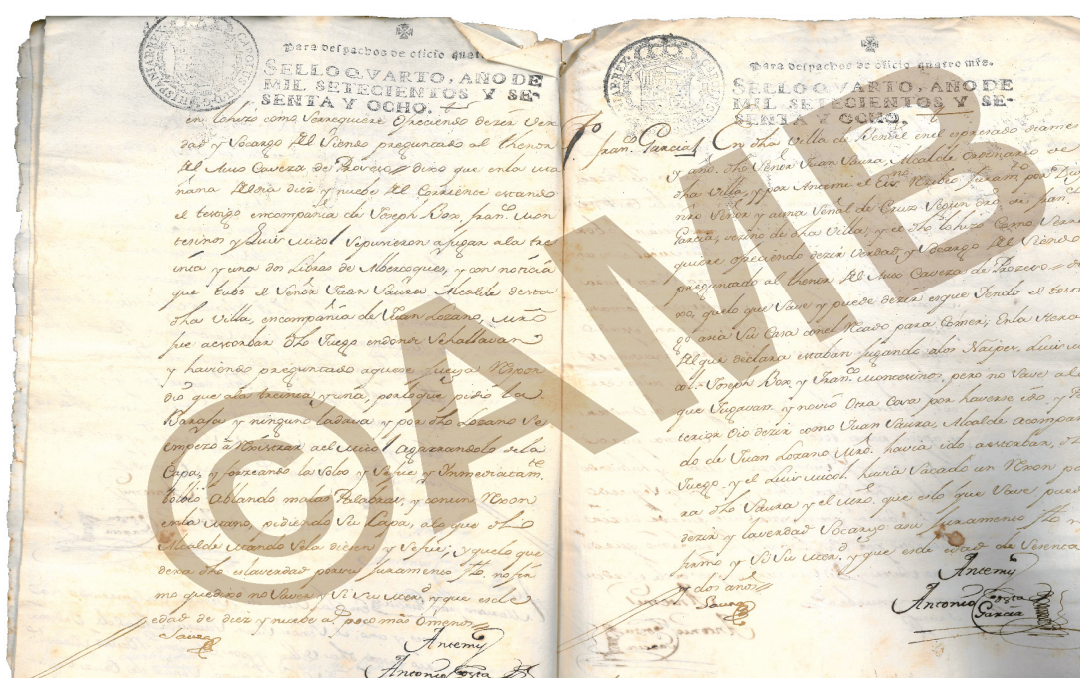 Para despachos de oficio quatro
SELLO QVARTO, AÑO DE
MIL SETECIENTOS Y SE-
SENTA Y OCHO.
en lo hizo como se requiere ofreciendo dezir ver
dad y so cargo del siendo preguntado al thenor
del Auto Caveza de Prozeso = dixo que en la ma
ñana del dia diez y nuebe del Corriente estando
el testigo en compañia de Joseph Box, Fran.co Mon
tesinos y Luis Miro se pusieron a jugar a la tre
inta y una dos Libras de Albercoques, y con noticia
que tubo el Señor Juan Saura Alcalde de esta
dha Villa, en compañia de Juan Lozano, Mro
fue a estorbar dho Juego en donde se hallavan
y haviendo preguntado a que se juega
dio que a la treinta y una, por lo que pidio la
Baraja y ninguno la dava y por dho Lozano se
empezo a Registrar a el Miro agarrandolo de la
Capa, y la solto y se fue y Inmediatam.te
bolvio Ablando malas Palabras, y con un
en la mano, pidiendo su Capa, a lo que dho
Alcalde mando se la diesen y se fue; y que lo que
deva dho es la verdad por su Juramento fho no fir
mo que dixo no saver y si su mer.d y que es de
edad de diez y nuebe a.s poco mas o menos
Saura
Antemi
Antonio Costa
Para despachos de oficio quatro mrs.
SELLO QVARTO, AÑO DE
MIL SETECIENTOS Y SE-
SENTA Y OCHO.
To. Fran.co Garcia En dha Villa de en el expresado dia mes
y año: dho Señor Juan Saura, Alcalde Ordinario de
dha Villa, y por Antemi el Ess.no Recibio Juram.to por Dios
nro Señor y a una Señal de Cruz segun dro. de Fran.co
Garcia, vezino de dha Villa; y el dho lo hizo como se re
quiere ofreciendo dezir verdad, y so cargo del siendo
preguntado al thenor del Auto Caveza de Prozeso = di
xo, que lo que save y puede dezir es que yendo el testi
go a su Casa con el para Comer, En la Hera
del que declara estaban jugando a los Naipes, Luis Mi
Joseph Box, y Fran.co Montesinos, pero no save a lo
que Jugavan y no vio Otra Cosa por haverse ido, y Pos
terior Oio dezir como Juan Saura, Alcalde acompaña
do de Juan Lozano Mro. havia ido a estorbar, dho
Juego, y el Luis Miro, havia sacado un pa
ra dho Saura y el Mro. que es lo que save puede
dezir y la verdad so cargo a su Juramento fho no
firmo y si su mer.d y que es de edad de sesenta
y dos años
Saura
Antemi
Antonio Costa
Garcia
©AMB